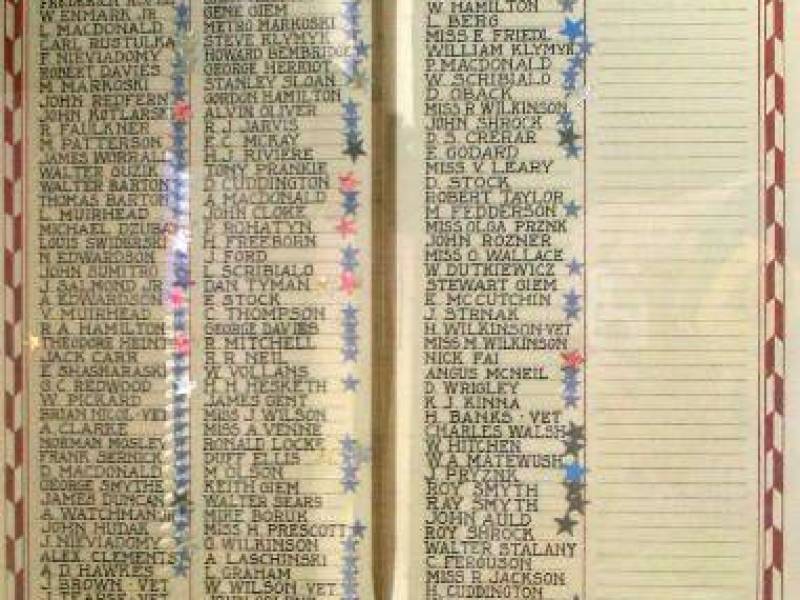 W ENMARK JR
L MACDONALD
CARL RUSTULKA
F NIEVIADOMY
ROBERT DAVIES
M. MARKOSKI
JOHN REDFERN
JOHN KOTLARSKI
R FAULKNER
M PATTERSON
JAMES WORRALL
WALTER GUZIK
WALTER BARTON
THOMAS BARTON
L. MUIRHEAD
MICHAEL DZUBA
LOUIS SWIDERSKI
N EDWARDSON
JOHN SUMITRO
J SALMOND JR
A EDWARDSON
V. MUIRHEAD
R A HAMILTON
THEODORE HEINTZ
JACK CARR
E SHASHARASKI
G.C. REDWOOD
W. PICKARD
BRIAN NICOL-VET
A. CLARKE
NORMAN MOSLEY
FRANK SERNICK
D. MACDONALD
GEORGE SMYTHE
JAMES DUNCAN
A WATCHMAN JR
JOHN HUDAK
J. NIEVIADOMY
ALEX CLEMENTS
A D HAWKES
J BROWN VET
GENE GIEM
METRO MARKOSKI
STEVE KLYMYK
HOWARD BEMBRIDGE
GEORGE HERRIOT
STANLEY SLOAN
GORDON HAMILTON
ALVIN OLIVER
R J JARVIS
E C MCKAY
H.J RIVIERE
TONY PRANKIE
D CUDDINGTON
A MACDONALD
JOHN CLOKE
P ROHATYN
H FREEBORN
J FORD
L SCRIBIALO
DAN TYMAN
E STOCK
C THOMPSON
GEORGE DAVIES
R MITCHELL
R R NEIL
W VOLLANS
H H HESKETH
JAMES GENT
MISS J WILSON
MISS A VENNE
RONALD LOCKE
DUFF ELLIS
M OLSON
KEITH GIEM
WALTER SEARS
MIKE BORUK
MISS H PRESCOTT
G WILKINSON
A LASCHINSKI
L GRAHAM
W WILSON VET
W HAMILTON
L BERG
MISS E FRIEDL
WILLIAM KLYMYK
P. MACDONALD
W. SCRIBIALO
D. OBACK
MISS R WILKINSON
JOHN SHROCK
D.S. CRERAR
E GODARD
MISS V LEARY
D. STOCK
ROBERT TAYLOR
M. FEDDERSON
MISS OLGA PRZNK
JOHN ROZNER
MISS O. WALLACE
W DUTKIEWICZ
STEWART GIEM
E MCCUTCHIN
J. STRNAK
H. WILKINSON-VET
MISS M. WILKINSON
NICK FAI
ANGUS MCNEIL
D. WRIGLEY
K J KINNA
H. BANKS - VET
CHARLES WALSH
W HITCHEN
W.A. MATEWUSH
PRYZNK
ROY SMYTH
RAY SMYTH
JOHN AULD
ROY SHROCK
WALTER STALANY
C. FERGUSON
MISS R JACKSON
H. CUDDINGTON